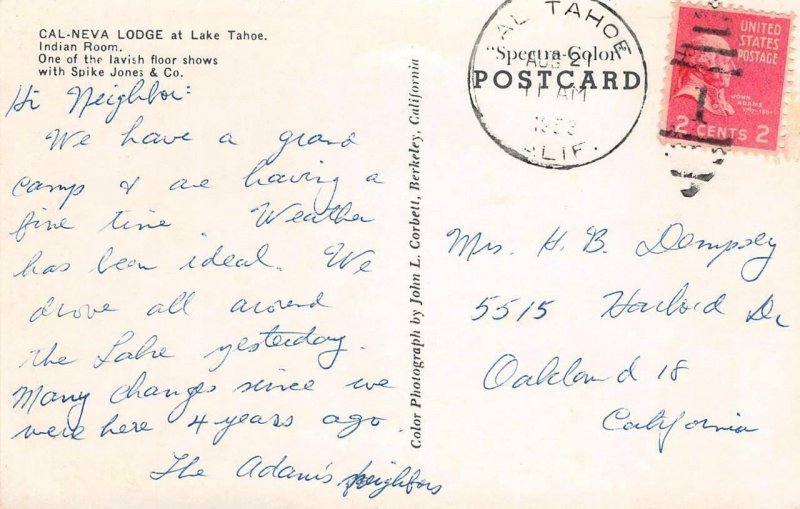 CAL-NEVA LODGE at Lake Tahoe.
Indian Room.
One of the lavish floor shows
with Spike Jones & Co.
Hi Neighbor:
We have a grand
camp & are having a
fine time. Weather
has been ideal. We
drove all around
the Lake yesterday.
Many changes since we
were here 4 years ago.
The Adam's Neighbors
Color Photograph by John L. Corbett, Berkeley, California
Spectra-Color
POSTCARD
AL TAHOE
AUG 21
11 AM
1953
CALIF.
UNITED
STATES
POSTAGE
JOHN
ADAMS
2 CENTS 2
Mrs. H. B. Dempsey
5515 Harbord Dr
Oakland 18
California